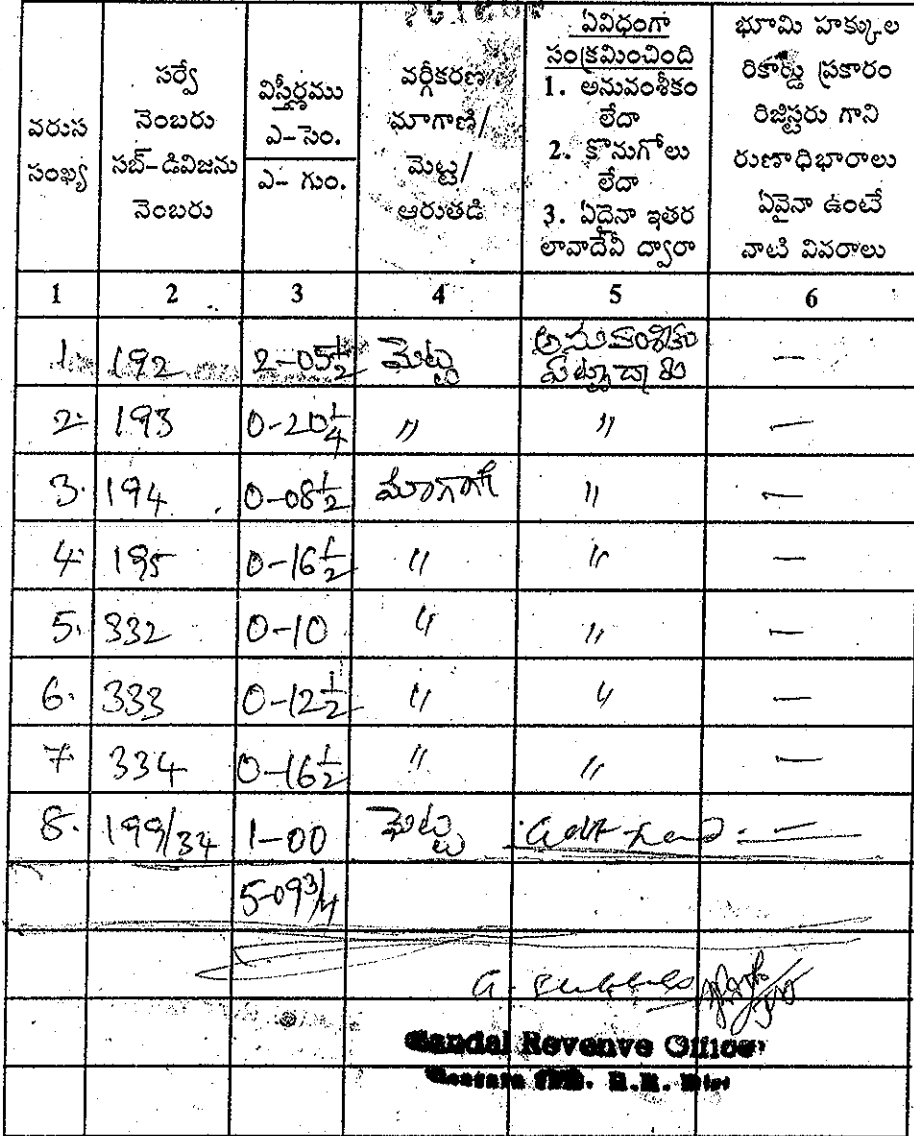 వరుస సంఖ్య
సర్వే నెంబరు సబ్-డివిజను నెంబరు
విస్తీర్ణము ఎ-సెం. ఎ- గుం.
వర్గీకరణ మాగాణి/ మెట్ట/ ఆరుతడి
ఏవిధంగా సంక్రమించింది 1. అనువంశీకం లేదా 2. కొనుగోలు లేదా 3. ఏదైనా ఇతర లావాదేవీ ద్వారా
భూమి హక్కుల రికార్డు ప్రకారం రిజిస్టరు గాని రుణాధిభారాలు ఏవైనా ఉంటే వాటి వివరాలు
1 2 3 4 5 6
1. 192 2-05½ మెట్ట అనువంశికం పట్టాదారు —
2. 193 0-20¼ " " —
3. 194 0-08½ మాగాణి " —
4. 195 0-16½ " " —
5. 332 0-10 " " —
6. 333 0-12½ " " —
7. 334 0-16½ " " —
8. 199/34 1-00 మెట్ట —
5-09¾
Mandal Revenve Officer
R.R. Dist